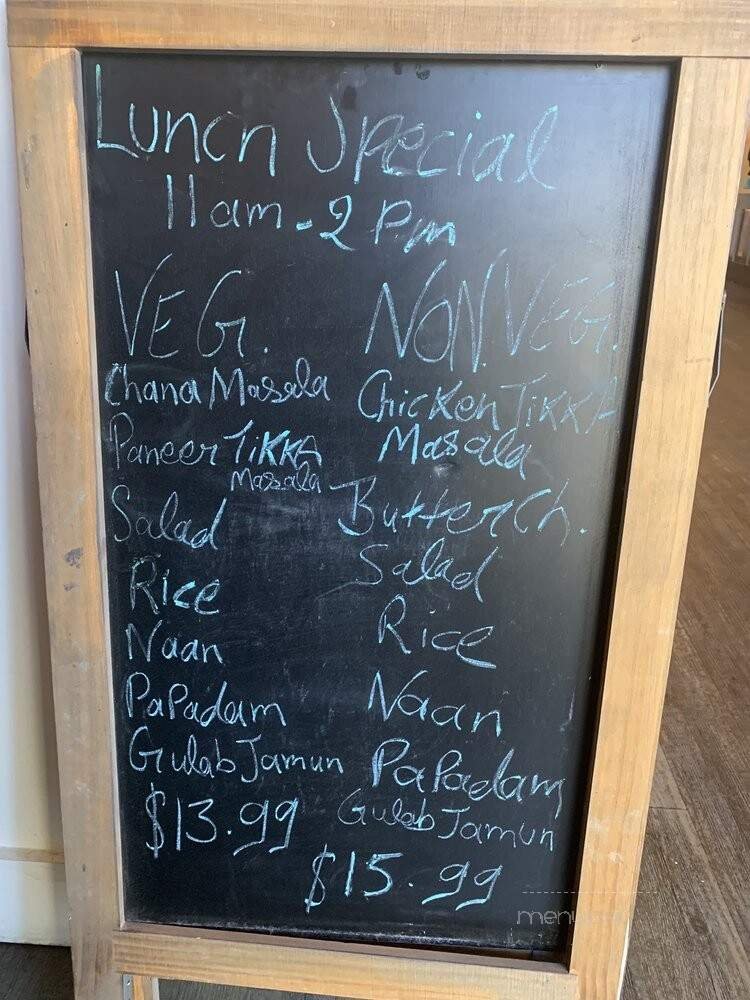 Lunch Special
11am-2 Pm
VEG.
Chana Masala
Paneer TIKKA
Masala
Salad
Rice
Naan
PaPadam
Gulab Jamun
$13.99
NON.VEG.
Chicken TIKKA
Masala
Butter Ch.
Salad
Rice
Naan
PaPadam
Gulab Jamun
$15.99